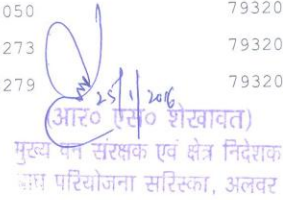 050 79320
273 79320
279 79320
25/1/2016
(आर० एस० शेखावत)
मुख्य वन संरक्षक एवं क्षेत्र निदेशक
बाघ परियोजना सरिस्का, अलवर